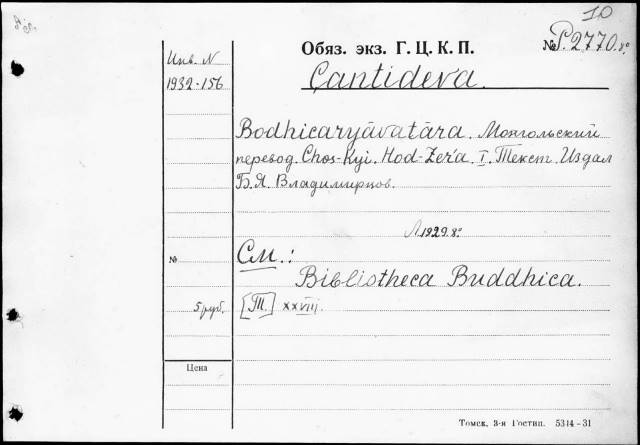 10
Обяз. экз. Г. Ц. К. П.
№ P.2770. 8°
Инв. N
1932-156
Çantideva.
Bodhicaryāvatāra. Монгольский
перевод. Chos-kyi. Hod-Zer'a. I. Текст. Издал
Б. Я. Владимирцов.
Л 1929. 8°
№
См.:
Bibliotheca Buddhica.
5 руб.
[Т.] XXVIII.
Цена
Томск, 3-я Гостип. 5314-31